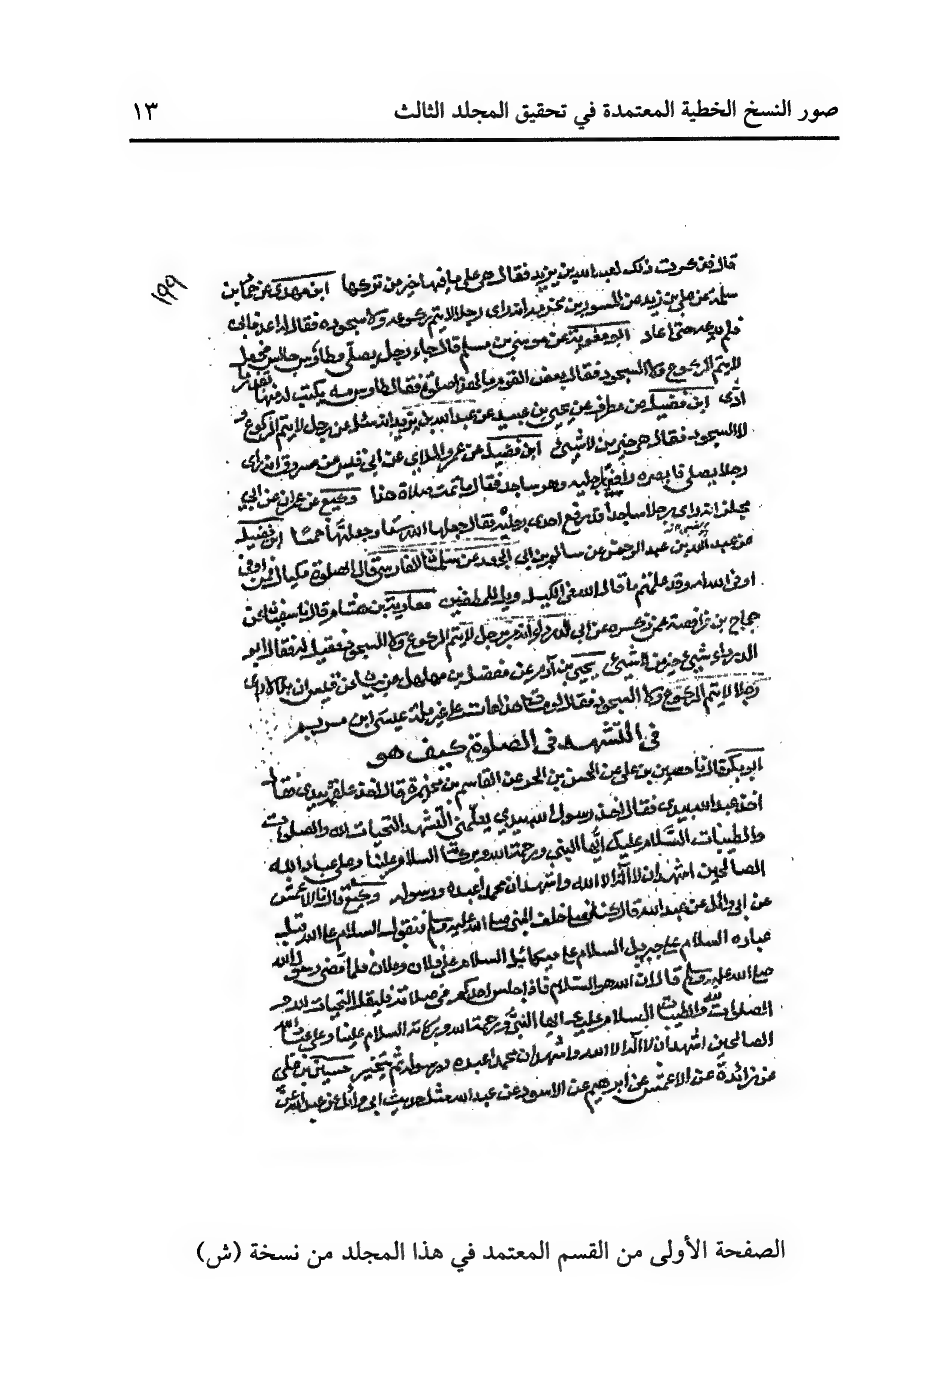 صور النسخ الخطية المعتمدة في تحقيق المجلد الثالث ١٣
١٩٩
قال فذكرت ذلك لعبد الله بن يزيد فقال هي على ما فيها خير من تركها ابن مهدي عن حماد بن
سلمة عن علي بن زيد عن المسور بن مخرمة انه راى رجلا لا يتم ركوعه ولا سجوده فقال له اعد فابى
فلم يدعه حتى اعاد ابو معوية عن موسى بن مسلم قال جاء رجل يصلي وطاوس جالس فجعل
لا يتم الركوع ولا السجود فقال بعض القوم ما لهذا صلوة فقال طاوس مه يكتب له منها بقدر ما
ادى ابن فضيل عن مطرف عن يحيى بن عبيد عن عبد الله بن يزيد انه سئل عن رجل لا يتم الركوع و
لا السجود فقال هي خير من لا شيئ ابن فضيل عن عمرو الملاي عن ابي قيس عن مسروق انه راى
رجلا يصلي فابصره رافعا رجليه وهو ساجد فقال ما تمت صلاة هذا وكيع عن عمران عن ابي
مجلز انه راى رجلا ساجدا قد رفع احدى رجليه فقال جعلها الله ستا وجعلتها خمسا ابن فضيل
عن عبد الله بن عبد الرحمن عن سالم بن ابي الجعد عن سلمان الفارسي قال الصلوة مكيال فمن اوفى
اوفى الله له وقد علمتم ما قال الله في الكيل ويل للمطففين معاوية بن هشام قال نا سفين عن
حجاج بن فرافصة عمن ذكره عن ابي الدرداء انه مر برجل لا يتم الركوع ولا السجود فقيل له فقال ابو
الدرداء شيئ خير من لا شيئ يحيى بن آدم عن مفضل بن مهلهل عن بيان عن قيس ان بلالا راى
رجلا لا يتم الركوع ولا السجود فقال لو مات هذا مات على غير ملة عيسى ابن مريم
في التشهد في الصلوة كيف هو
ابو بكر قال نا حسين بن علي عن الحسن بن الحر عن القاسم بن مخيمرة قال اخذ علقمة بيدي فقال
اخذ عبد الله بيدي فقال اخذ رسول الله بيدي يعلمني التشهد التحيات لله والصلوات
والطيبات السلام عليك ايها النبي ورحمة الله وبركاته السلام علينا وعلى عباد الله
الصالحين اشهد ان لا اله الا الله واشهد ان محمدا عبده ورسوله وكيع قال نا الاعمش
عن ابي وائل عن عبد الله قال كنا نصلي خلف النبي صلى الله عليه وسلم فنقول السلام على الله قبل
عباده السلام على جبريل السلام على ميكائيل السلام على فلان وفلان فلما قضى رسول الله
صلى الله عليه وسلم قال ان الله هو السلام فاذا جلس احدكم في صلاته فليقل التحيات لله و
الصلوات والطيبات السلام عليك ايها النبي ورحمة الله وبركاته السلام علينا وعلى عباد الله
الصالحين اشهد ان لا اله الا الله واشهد ان محمدا عبده ورسوله ثم يتخير حسين بن علي
عن زائدة عن الاعمش عن ابرهيم عن الاسود عن عبد الله مثل حديث ابي وائل عن عبد الله عن
الصفحة الأولى من القسم المعتمد في هذا المجلد من نسخة (ش)